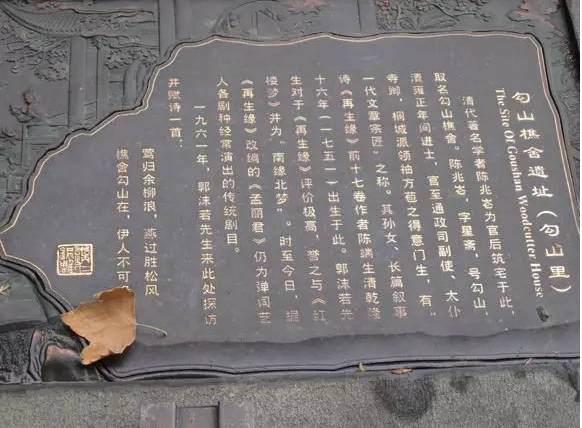 勾山樵舍遗址(勾山里)
The Site Of Goushan Woodcutter House
清代著名学者陈兆崙为官后筑宅于此,
取名勾山樵舍。陈兆崙,字星斋,号勾山,
清雍正年间进士,官至通政司副使、太仆
寺卿,桐城派领袖方苞之得意门生,有“
一代文章宗匠”之称。其孙女、长篇叙事
诗《再生缘》前十七卷作者陈端生清乾隆
十六年(一七五一)出生于此。郭沫若先
生对于《再生缘》评价极高,誉之与《红
楼梦》并为“南缘北梦”。时至今日,据
《再生缘》改编的《孟丽君》仍为弹词艺
人各剧种经常演出的传统剧目。
一九六一年,郭沫若先生来此处探访
并赋诗一首:
莺归余柳浪,燕过胜松风。
樵舍勾山在,伊人不可